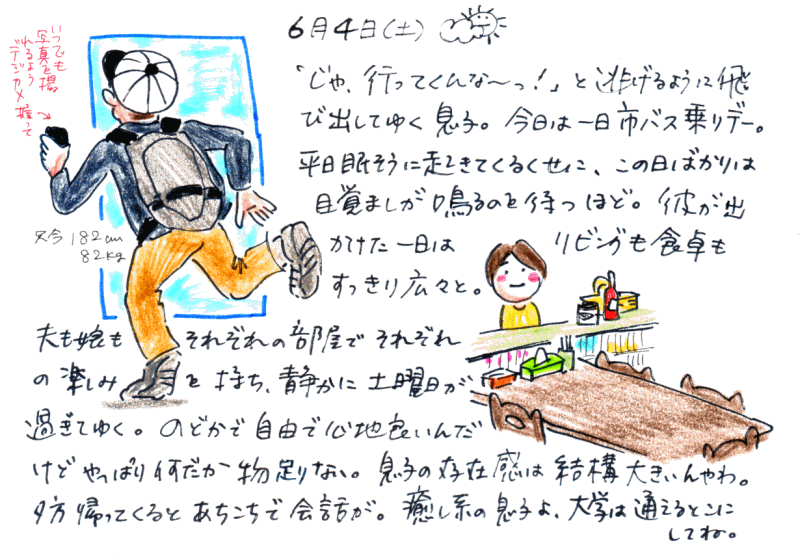 6月4日(土)
いつでも
写真を撮
れるよう
デジカメ握って
「じゃ、行ってくんな〜っ!」と逃げるように飛
び出してゆく息子。今日は一日市バス乗りデー。
平日眠そうに起きてくるくせに、この日ばかりは
目覚ましが鳴るのを待つほど。彼が出
かけた一日は リビングも食卓も
すっきり広々と。
只今182cm
82kg
夫も娘も それぞれの部屋でそれぞれ
の楽しみを持ち、静かに土曜日が
過ぎてゆく。のどかで自由で心地良いんだ
けどやっぱり何だか物足りない。息子の存在感は結構大きいんやわ。
夕方帰ってくるとあちこちで会話が。癒し系の息子よ、大学は通えるとこに
してね。